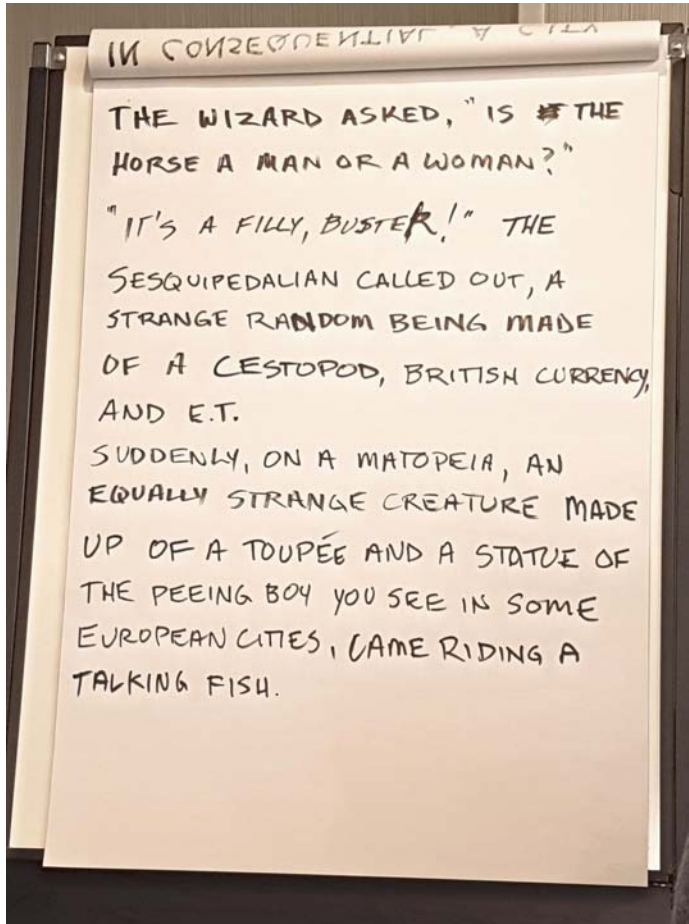 IN CONSEQUENTIAL. A CITY
THE WIZARD ASKED, "IS THE
HORSE A MAN OR A WOMAN?"
"IT'S A FILLY, BUSTER!" THE
SESQUIPEDALIAN CALLED OUT, A
STRANGE RANDOM BEING MADE
OF A CESTOPOD, BRITISH CURRENCY,
AND E.T.
SUDDENLY, ON A MATOPEIA, AN
EQUALLY STRANGE CREATURE MADE
UP OF A TOUPÉE AND A STATUE OF
THE PEEING BOY YOU SEE IN SOME
EUROPEAN CITIES, CAME RIDING A
TALKING FISH.